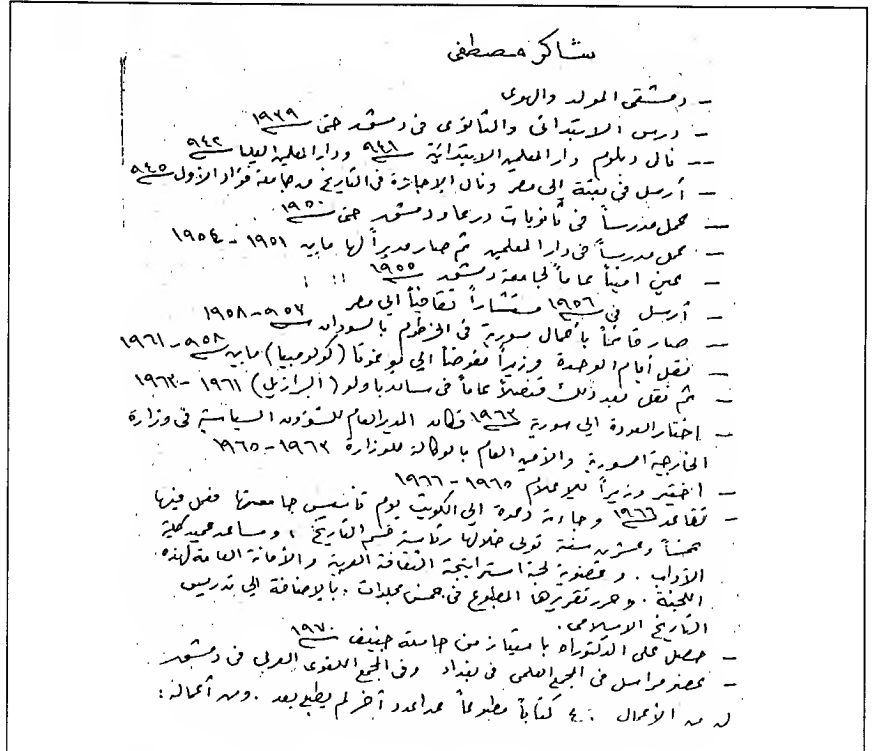 شاكر مصطفى
- دمشقي المولد والهوى
- درس الابتدائي والثانوي في دمشق حتى ١٩٣٩
-- نال دبلوم دار المعلمين الابتدائية ٩٤١ ودار المعلمين العليا ٩٤٢
- أرسل في بعثة إلى مصر ونال الاجازة في التاريخ من جامعة فؤاد الأول ٩٤٥
- عمل مدرساً في ثانويات درعا ودمشق حتى ١٩٥٠
- عمل مدرساً في دار المعلمين ثم صار مديراً لها مابين ١٩٥١ - ١٩٥٤
- عين اميناً عاماً لجامعة دمشق ١٩٥٥
- أرسل في ١٩٥٦ مستشاراً ثقافياً الى مصر
- صار قائماً بأعمال سورية في الخرطوم بالسودان ٩٥٧ - ١٩٥٨
- نقل أيام الوحدة وزيراً مفوضاً الى بوغوتا (كولومبيا) مابين ٩٥٨ - ١٩٦١
- ثم نقل بعد ذلك قنصلاً عاماً في ساندباولو (البرازيل) ١٩٦١ - ١٩٦٣
- اختار العودة الى سورية ١٩٦٣ فكان المدير العام للشؤون السياسية في وزارة
الخارجية السورية والأمين العام بالوكالة للوزارة ١٩٦٣ - ١٩٦٥
- اختير وزيراً للإعلام ١٩٦٥ - ١٩٦٦
- تقاعد ١٩٦٦ وجاءته دعوة الى الكويت يوم تأسيس جامعتها فعمل فيها
خمساً وعشرين سنة تولى خلالها رئاسة قسم التاريخ، ومساعد عميد كلية
الآداب. وعضوية لجنة استراتيجية الثقافة العربية والأمانة العامة لهذه
اللجنة. وحرر تقريرها المطبوع في خمس مجلدات، بالإضافة الى تدريس
التاريخ الاسلامي.
- حصل على الدكتوراه بامتياز من جامعة جنيف ١٩٧٠
- عضو مراسل في المجمع العلمي في بغداد وفي المجمع اللغوي العربي في دمشق
له من الأعمال ٤٠ كتاباً مطبوعاً عدا عدد آخر لم يطبع بعد. ومن أعماله: